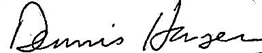 Dennis Hansen